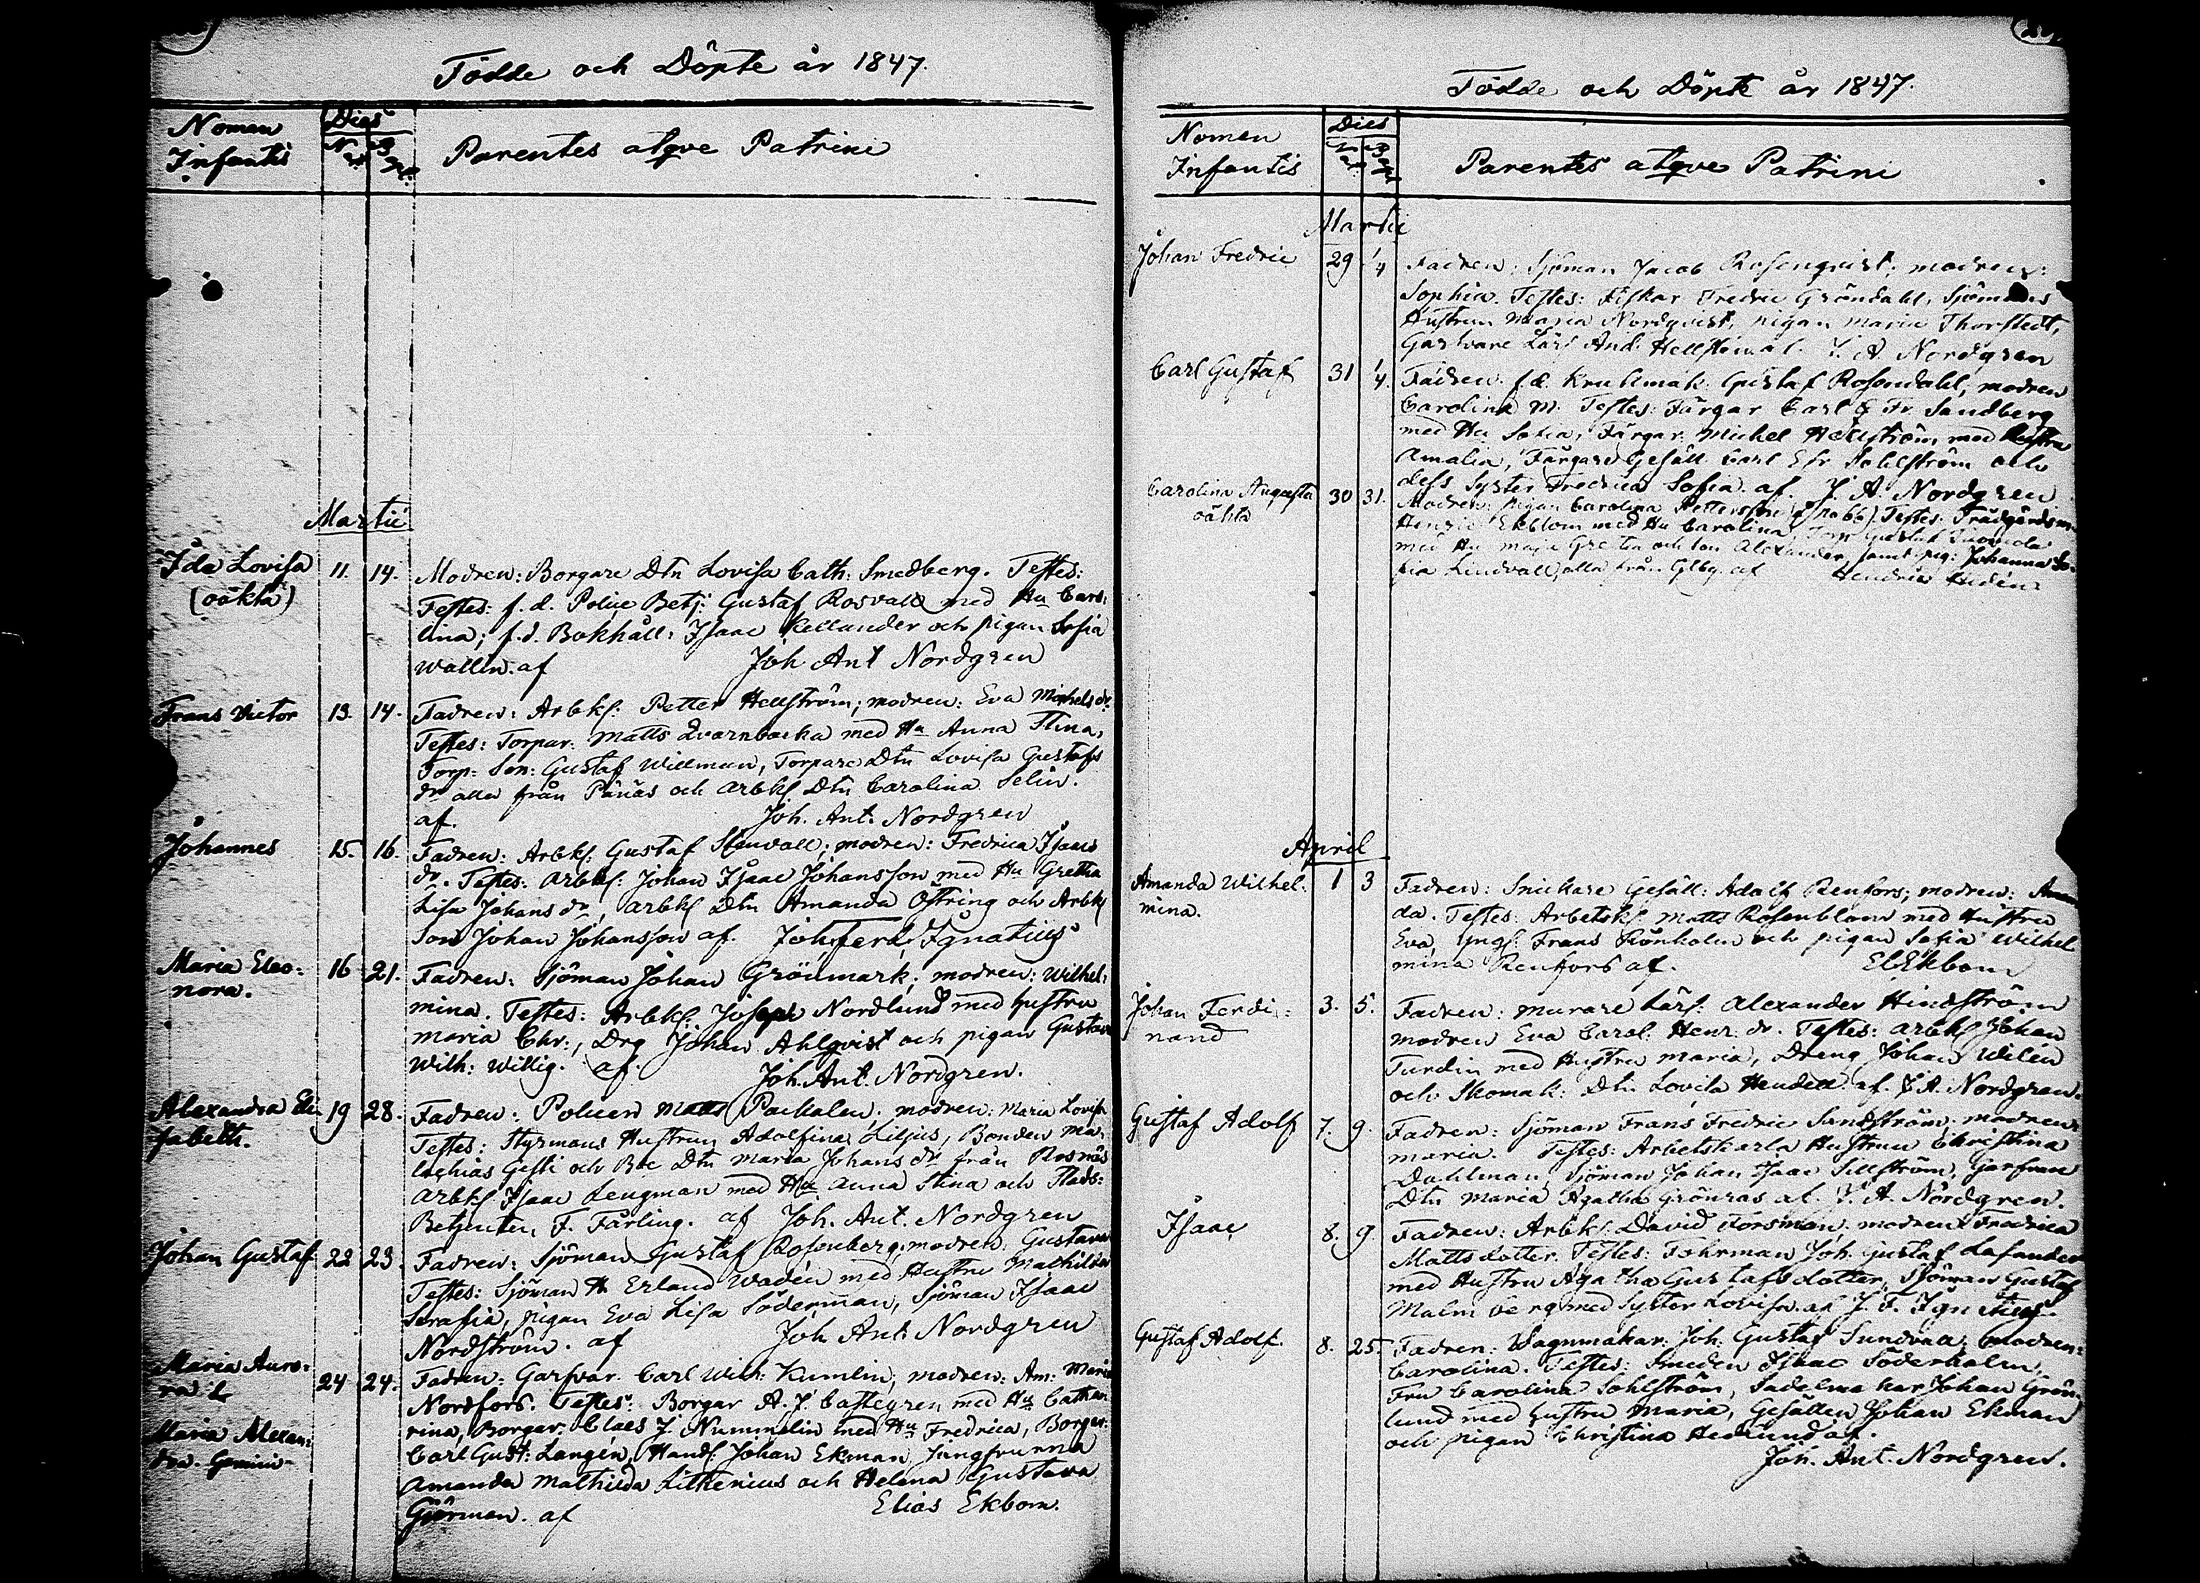 Födde och Döpte år 1847.
Nomen Infantis
Dies
Parentes atqve Patrini
Martii
Ida Lovisa
(oäkta)
11. 14.
Modren: Borgare Dtn Lovisa Cath: Smedberg. Testes:
Testes: f. d. Police Betj: Gustaf Rosvall med Hu Caro:
lina; f. d. Bokhåll: Isaac Kellander och pigan Sofia
Wallin. af Joh Ant Nordgren
Frans Victor
13. 14.
Fadren: Arbks: Petter Hellström; modren: Eva Michelsdr.
Testes: Torpar: Matts Qvarnbacka med Hu Anna Stina,
Torp: Son: Gustaf Willman, Torpare Dtn Lovisa Gustafs
dr alla från Pänäs och Arbks Dtn Carolina Selin.
af. Joh. Ant. Nordgren
Johannes
15. 16.
Fadren: Arbks: Gustaf Stenvall; modren: Fredrica Isaacs
dr. Testes: Arbks: Johan Isaac Johansson med Hu Gretha
Lisa Johans dr, Arbks Dtn Amanda Östring och Arbks
Son Johan Johansson af. Joh. Ferd. Ignatius
Maria Eleo:
nora.
16 21.
Fadren: Sjöman Johan Grönmark; modren: Wilhel:
mina. Testes: Arbks: Joseph Nordlund med hustru
Maria Chr:, Drg Johan Ahlqvist och pigan Gustava
Wilh: Willig. af. Joh. Ant. Nordgren.
Alexandra Eli
sabeth.
19 28.
Fadren: Policen Matts Packalen; modren: Maria Lovisa
Testes: Styrmans Hustrun Adolfina Liljus, Bonden Ma:
lachias Gesti och Bde Dtn Maria Johans dr från Rosnäs
Arbks Isaac Lengman med Hu Anna Stina och Stads:
Betjenten, F. Färling. af Joh. Ant. Nordgren
Johan Gustaf
22 23.
Fadren: Sjöman Gustaf Rosenberg; modren: Gustava
Testes: Sjöman Erland Wadén med Hustru Mathilda
Serafia, pigan Eva Lisa Söderman, Sjöman Isaac
Nordström. af Joh Ant. Nordgren
Maria Auro:
ra &
Maria Alexan:
dra. Gemini
24 24.
Fadren: Garfvar. Carl Wilh: Kumlin; modren: Am: Maria
Nordfors. Testes: Borgar A. J. Castegren med Hu Catha
rina, Borgar: Claes J. Nummelin med Hu Fredrica, Borgar:
Carl Gust: Langén, Hands: Johan Ekman Jungfrurna
Amanda Mathilda Lithenius och Helena Gustava
Görman. af Elias Ekbom.
Födde och Döpte år 1847.
Nomen Infantis
Dies
Parentes atqve Patrini
Martii
Johan Fredric
29 1/4
Fadren: Sjöman Jacob Rosenqvist; modren:
Sophia. Testes: Fiskar Fredric Gröndahl, Sjömans
Hustrun Maria Nordqvist, pigan Maria Thorstedt,
Garfvare Lärl And. Hellström af. J. A. Nordgren
Carl Gustaf
31 1/4.
Fadren: f.d. Krukmak: Gustaf Rosendahl, modren
Carolina M. Testes: Färgar Carl Fr. Sandberg
med Hu Sofia, Färgar. Michel Hellström med hustru
Amalia, Färgare Gesäll. Carl Efr Sahlström och
dess Syster Fredrica Sofia. af. J. A. Nordgren
Carolina Augusta
oäkta
30 31.
Modren: pigan Carolina Testes: Trädgårdsm
Henric Ekblom med Hu Carolina, Torp Gustaf
med Hu Maja Greta och son Alexander, samt pig: Johanna So:
fia Lindvall, alla från Glby. af Hendric Hedén
April
Amanda Wilhel:
mina.
1 3
Fadren: Snickare Gesäll: Adolf Renfors; modren: Aman
da. Testes: Arbetsk: Matts Rosenblom med Hustru
Eva, yngl: Frans Rönholm och pigan Sofia Wilhel
mina Renfors af. El Ekbom
Johan Ferdi:
nand
3. 5.
Fadren: murare Lärl: Alexander Hindström
modren Eva Carol: Henr. dr. Testes: Arbks Johan
Turdin med Hustru Maria, Dreng Johan Wilén
och Skomak: Dtn Lovisa Hendell. af. J. A. Nordgren.
Gustaf Adolf
7. 9.
Fadren: Sjöman Frans Fredric Sundström; modren:
Maria. Testes: Arbetskarls Hustrun Christina
Dahlman, Sjöman Johan Isaac Sillström, Garfvare
Dtn Maria Agatha Grönroos af. J. A. Nordgren.
Isaac
8. 9.
Fadren: Arbks: David Forsman; modren Fredrica
Mattsdotter. Testes: Fohrman Joh. Gustaf Lasander
med Hustru Agatha Gustafsdotter, Sjöman Gustaf
Malmberg med Syster Lovisa. af J. F. Ignatius
Gustaf Adolf.
8. 25.
Fadren: Wagnmakar: Joh: Gustaf Sundvall; modren:
Carolina. Testes: Smeden Isaac Söderholm,
Fru Carolina Sohlström, Sadelmakar Johan Grön:
lund med hustru Maria, Gesällen Johan Ekman
och pigan Christina Hedlund af.
Joh. Ant. Nordgren.